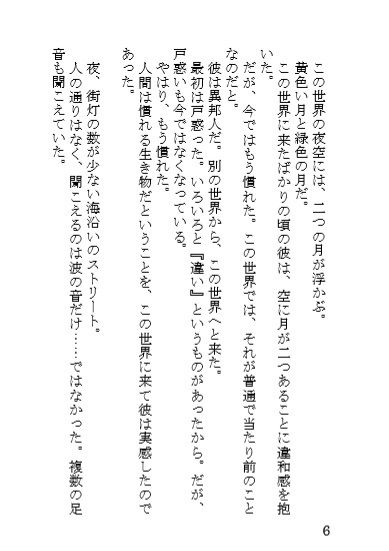 この世界の夜空には、二つの月が浮かぶ。
黄色い月と緑色の月だ。
この世界に来たばかりの頃の彼は、空に月が二つあることに違和感を抱
いた。
だが、今ではもう慣れた。この世界では、それが普通で当たり前のこと
なのだと。
彼は異邦人だ。別の世界から、この世界へと来た。
最初は戸惑った。いろいろと『違い』というものがあったから。だが、
戸惑いも今ではなくなっている。
やはり、もう慣れた。
人間は慣れる生き物だということを、この世界に来て彼は実感したので
あった。
夜、街灯の数が少ない海沿いのストリート。
人の通りはなく、聞こえるのは波の音だけ……ではなかった。複数の足
音も聞こえていた。
6